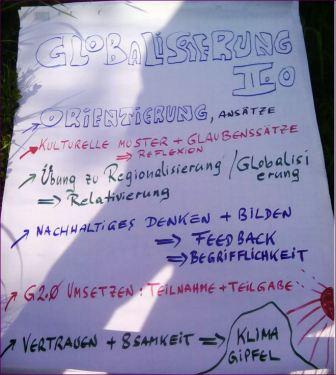 GLOBALISIERUNG
II.0
ORIENTIERUNG, ANSÄTZE
KULTURELLE MUSTER + GLAUBENSSÄTZE
⇒ REFLEXION
Übung zu Regionalisierung / Globalisi
erung
⇒ Relativierung
NACHHALTIGES DENKEN + BILDEN
⇒ FEEDBACK
⇒ BEGRIFFLICHKEIT
G2.0 UMSETZEN: TEILNAHME + TEILGABE
VERTRAUEN + 8SAMKEIT ⇒ KLIMA
GIPFEL